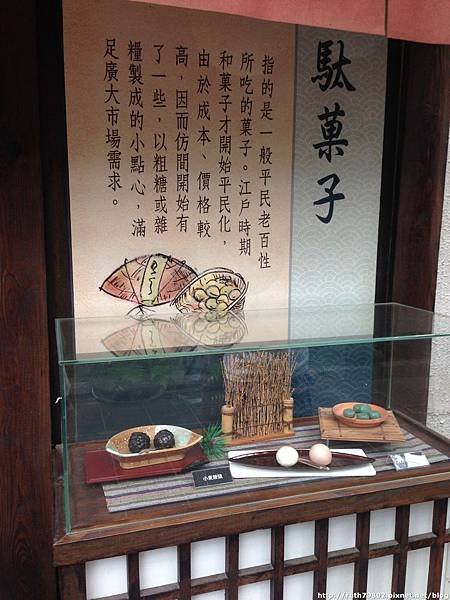 駄菓子
指的是一般平民老百性
所吃的菓子。江戶時期
和菓子才開始平民化，
由於成本、價格較
高，因而仿間開始有
了一些，以粗糖或雜
糧製成的小點心，滿
足廣大市場需求。
http://ruth79802.pixnet.net/blog